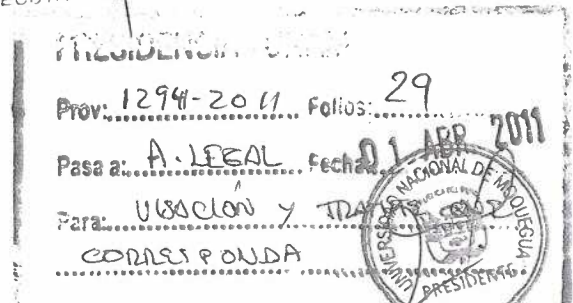 PRESIDENCIA
Prov: 1294-2011 Folios: 29
Pasa a: A. LEGAL Fecha: 01 ABR 2011
Para: VISACIÓN Y
CORRESPONDA
UNIVERSIDAD NACIONAL DE MOQUEGUA
PRESIDENTE